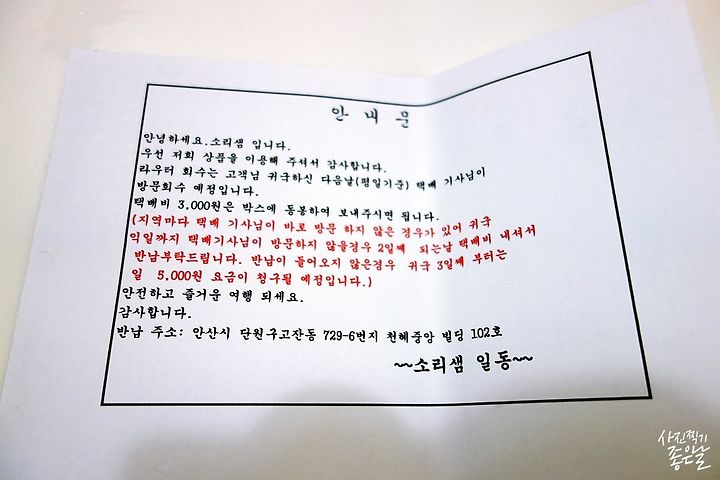 안내문
안녕하세요.소리샘 입니다.
우선 저희 상품을 이용해 주셔서 감사합니다.
라우터 회수는 고객님 귀국하신 다음날(평일기준) 택배 기사님이
방문회수 예정입니다.
택배비 3,000원은 박스에 동봉하여 보내주시면 됩니다.
(지역마다 택배 기사님이 바로 방문 하지 않은 경우가 있어 귀국
익일까지 택배기사님이 방문하지 않을경우 2일째 되는날 택배비 내셔서
반납부탁드립니다. 반납이 들어오지 않은경우 귀국 3일째 부터는
일 5,000원 요금이 청구될 예정입니다.)
안전하고 즐거운 여행 되세요.
감사합니다.
반납 주소: 안산시 단원구고잔동 729-6번지 천혜중앙 빌딩 102호
~~소리샘 일동~~
사진찍기
좋은날